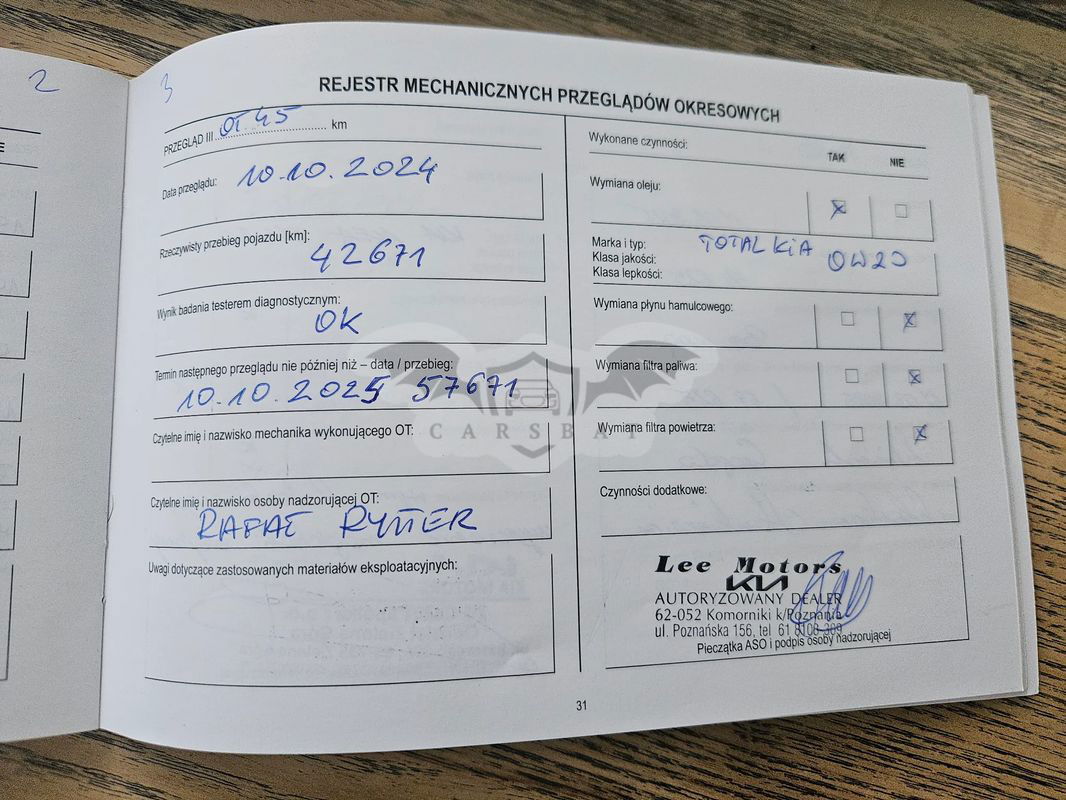 2
E
3
REJESTR MECHANICZNYCH PRZEGLĄDÓW OKRESOWYCH
PRZEGLĄD III OT.45 km
Data przeglądu: 10.10.2024
Rzeczywisty przebieg pojazdu [km]:
42671
Wynik badania testerem diagnostycznym:
OK
Termin następnego przeglądu nie później niż – data / przebieg:
10.10.2025 57671
Czytelne imię i nazwisko mechanika wykonującego OT:
Czytelne imię i nazwisko osoby nadzorującej OT:
RAFAŁ RYTTER
Uwagi dotyczące zastosowanych materiałów eksploatacyjnych:
Wykonane czynności:
TAK NIE
Wymiana oleju:
Marka i typ: TOTAL KIA 0W20
Klasa jakości:
Klasa lepkości:
Wymiana płynu hamulcowego:
Wymiana filtra paliwa:
Wymiana filtra powietrza:
Czynności dodatkowe:
Lee Motors
KIA
AUTORYZOWANY DEALER
62-052 Komorniki k/Poznania
ul. Poznańska 156, tel 61 8108-309
Pieczątka ASO i podpis osoby nadzorującej
31
CARSBAT